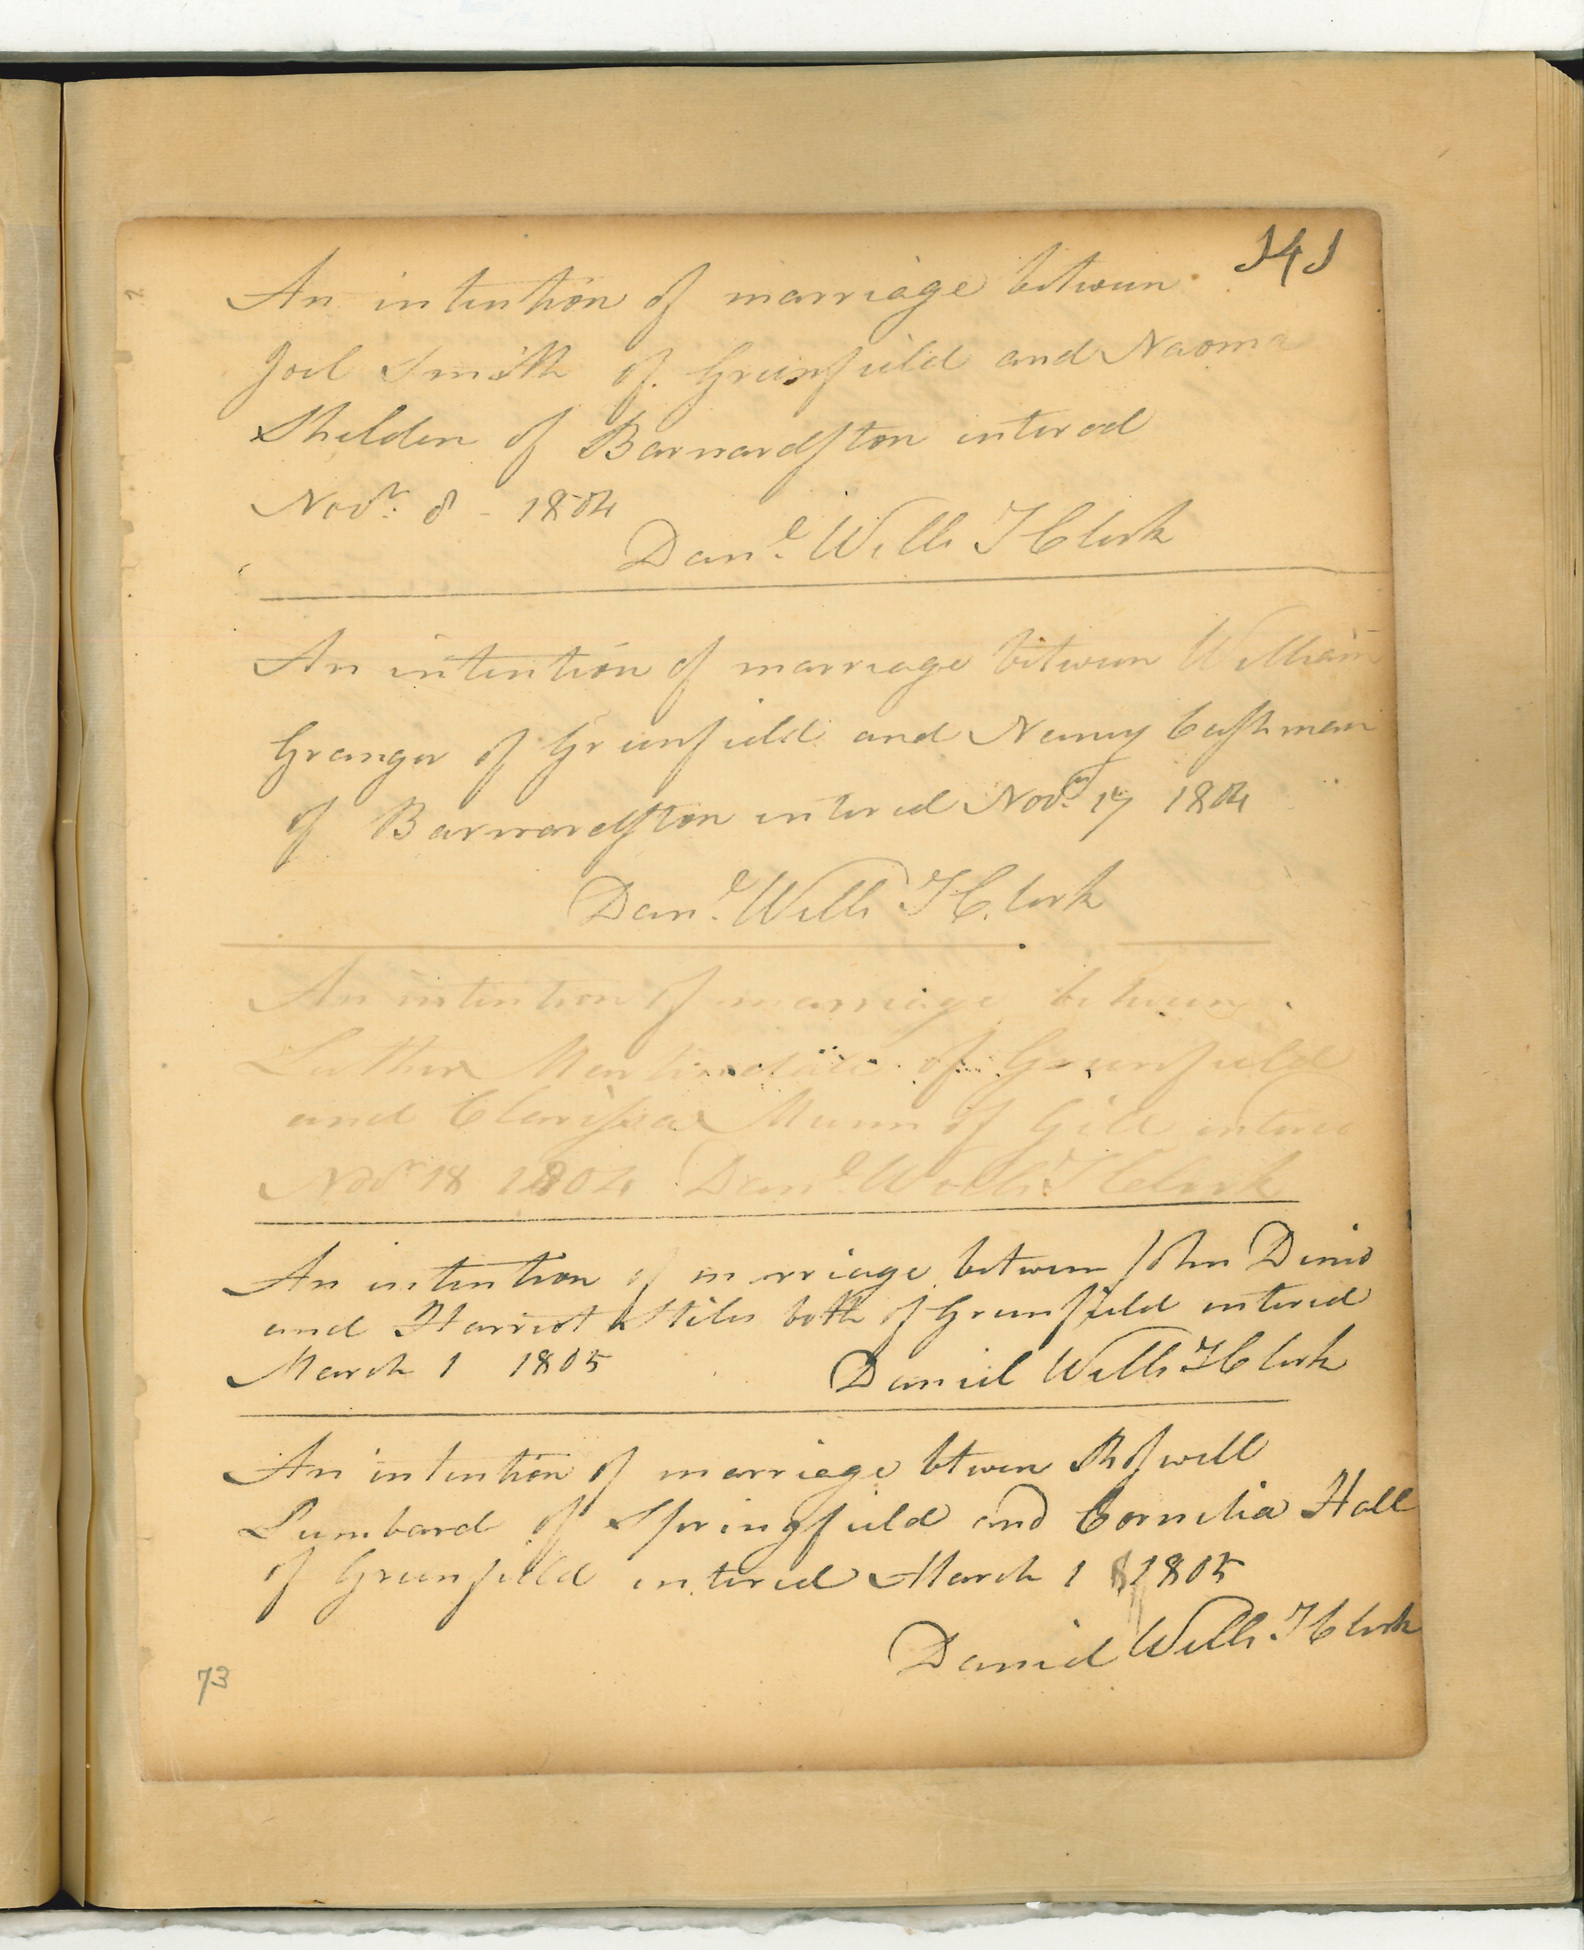 141
An intention of marriage between
Joel Smith of Greenfield and Naoma
Shelden of Barnardston entered
Novr. 8 - 1804
Danl. Wells T Clerk
An intention of marriage between William
Granger of Greenfield and Nancy Cushman
of Barnardston entered Novr. 17 1804
Danl. Wells T Clerk
An intention of marriage between
Luther Martindale of Greenfield
and Clarissa Munn of Gill entered
Novr 18 1804 Danl. Wells T Clerk
An intention of marriage between John
and Harriot Stiles both of Greenfield entered
March 1 1805 Daniel Wells T Clerk
An intention of marriage btween Roswell
Lumbard of Springfield and Cornelia Hall
of Greenfield entered March 1 1805
Daniel Wells T Clerk
73